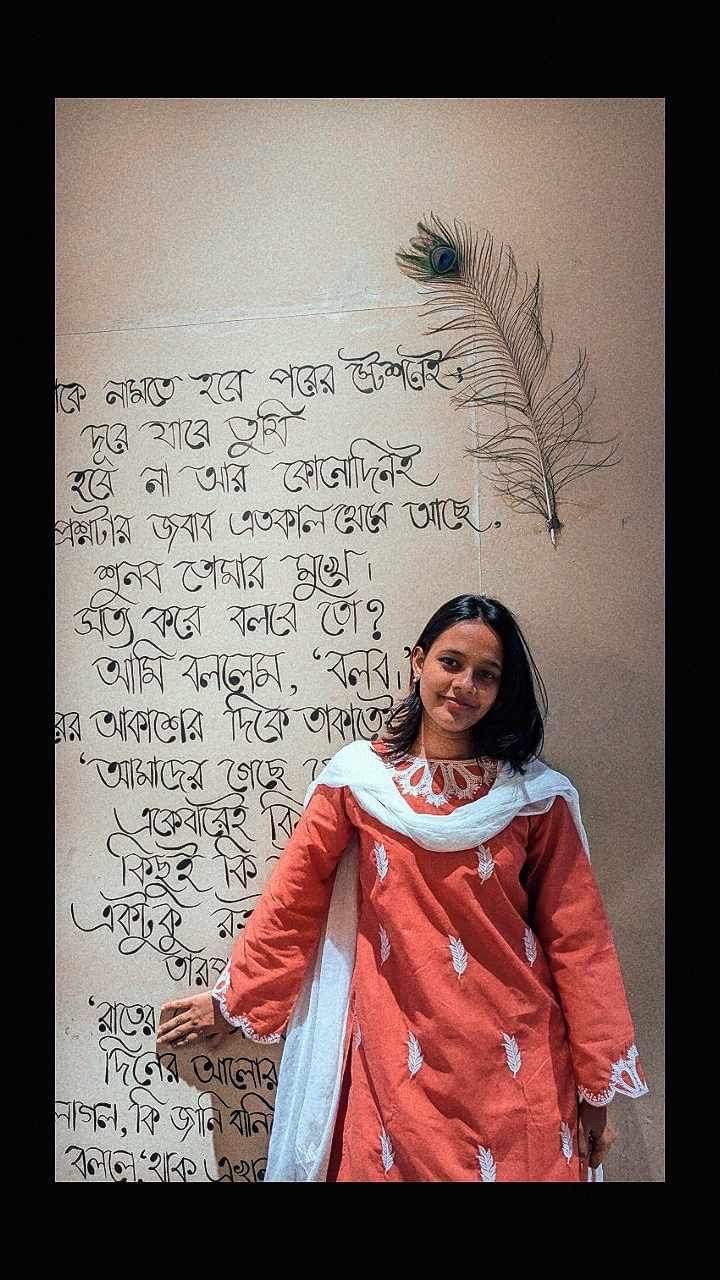 কে নামতে হবে পরের স্টেশনেই;
দূরে যাবে তুমি
হবে না আর কোনোদিনই
প্রশ্নটার জবাব এতকাল থেমে আছে,
শুনব তোমার মুখে।
সত্য করে বলবে তো?
আমি বললেম, ‘বলব।’
আকাশের দিকে তাকাতেই
‘আমাদের গেছে
একেবারেই
কিছুই কি
একটুকু
‘রাতের
দিনের আলোর
লাগল, কি জানি
বললে, ‘থাক